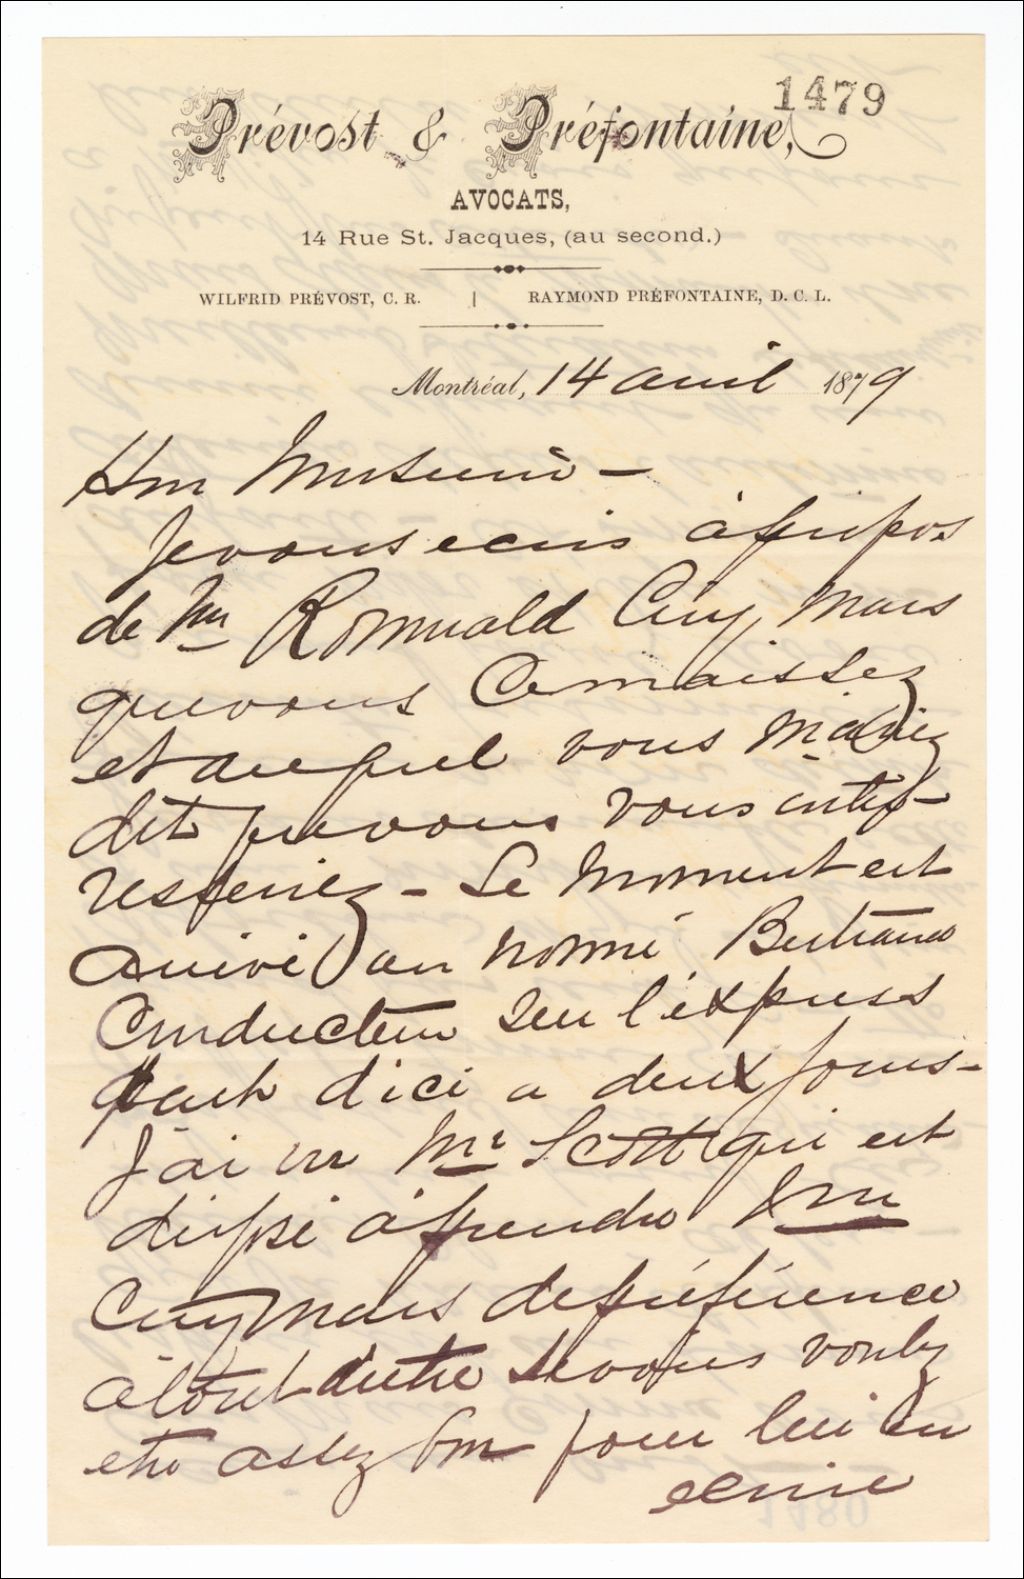 1479
Prévost & Préfontaine,
AVOCATS,
14 Rue St. Jacques, (au second.)
WILFRID PRÉVOST, C. R. | RAYMOND PRÉFONTAINE, D. C. L.
Montréal, 14 avril 1879
Hon Monsieur –
Je vous ecris à propos
de Mr Romuald Cinq Mars
que vous Connaissez
et auquel vous m'aviez
dit que vous vous inté-
resseriez – Le moment est
arrivé un nommé Bertrand
Conducteur sur l'express
part d'ici a deux jours –
J'ai vu Mr Scott qui est
disposé à prendre
Cinq Mars de préférence
à tout autre si vous voulez
etre assez bon pour lui en
ecrire
1480